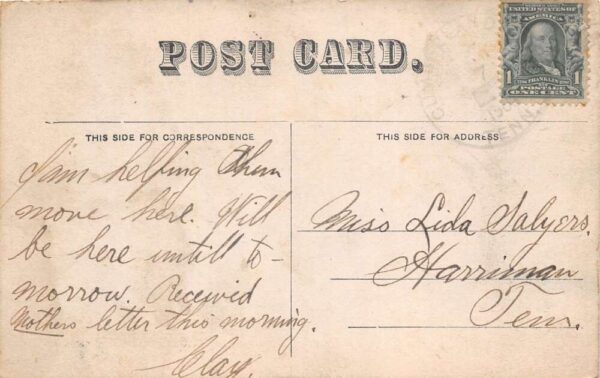 POST CARD.
UNITED STATES OF
AMERICA
1 FRANKLIN 1
POSTAGE
ONE CENT
TENN.
THIS SIDE FOR CORRESPONDENCE
I'am helping them
move here. Will
be here untill to-
morrow. Received
Mothers letter this morning.
Clay.
THIS SIDE FOR ADDRESS
Miss Lida Salyers.
Harriman
Tenn.